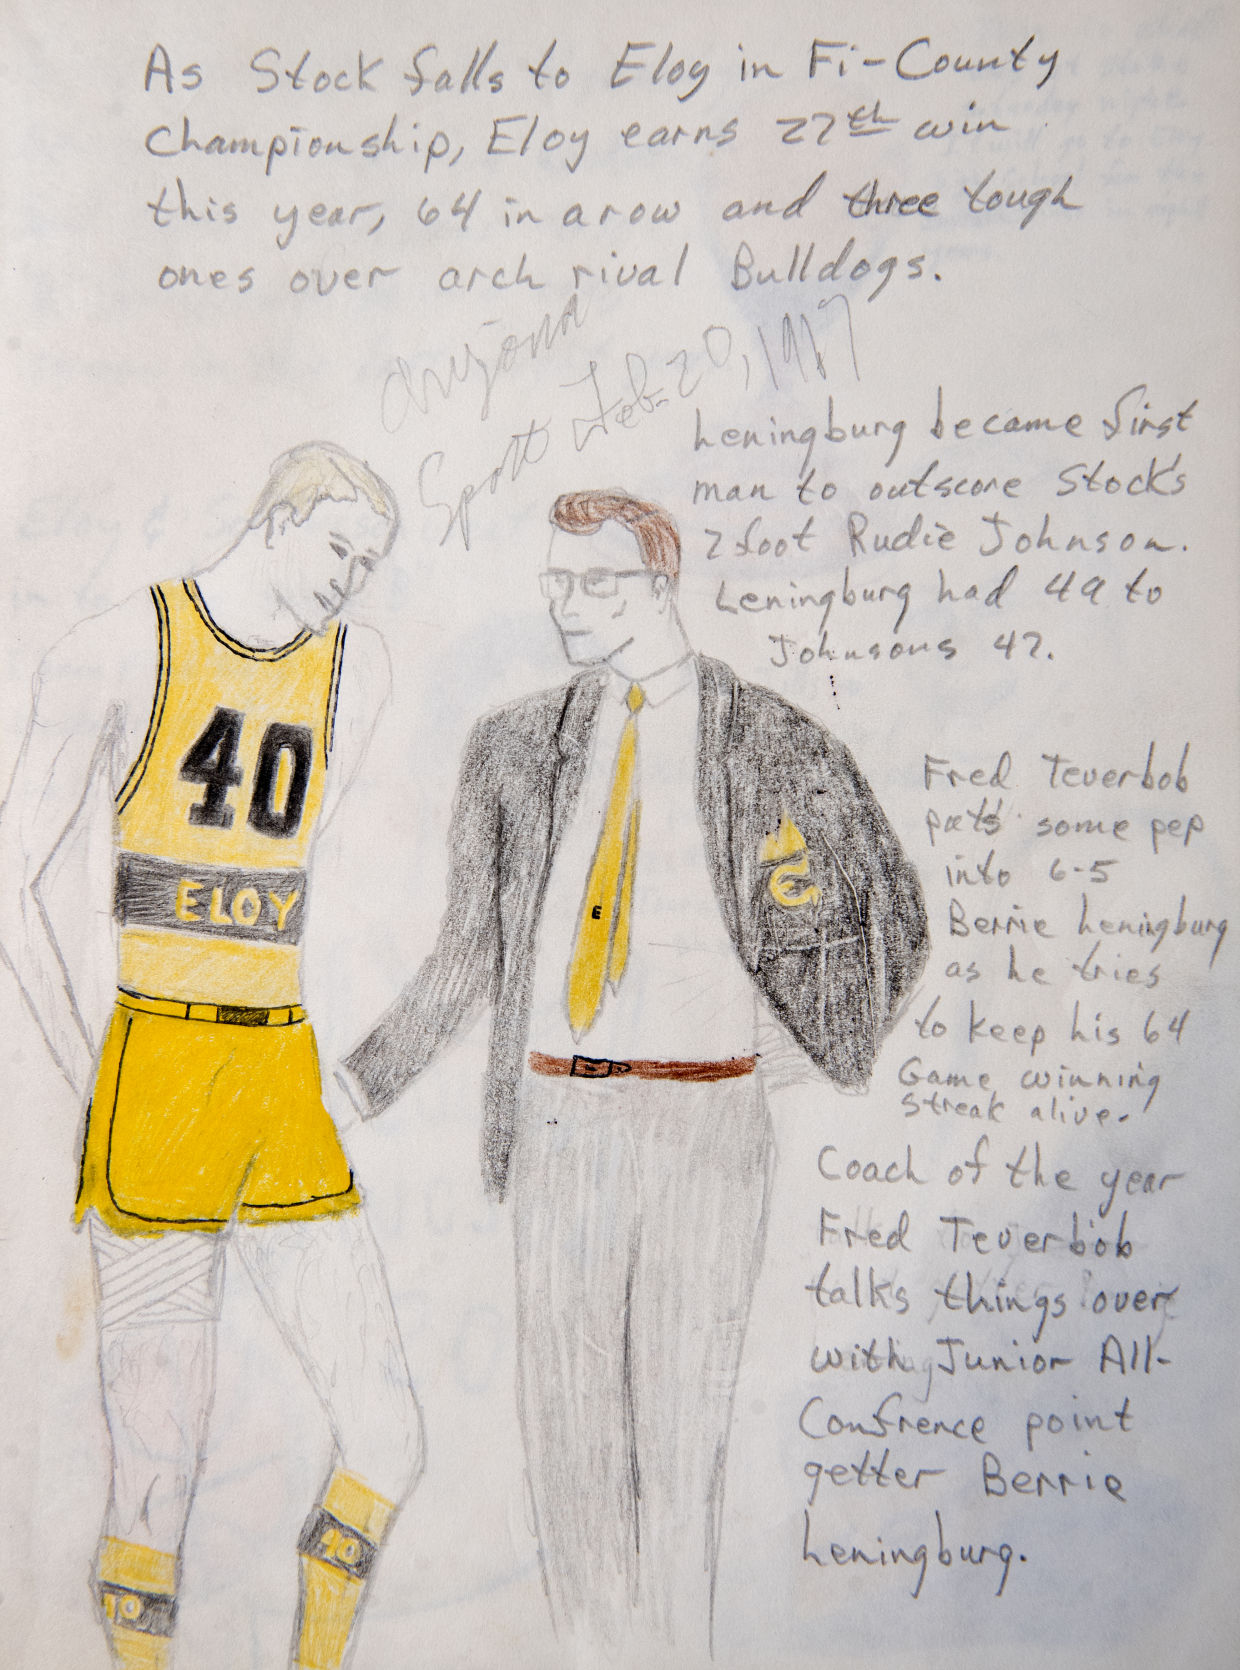 As Stock falls to Eloy in Fi-County
Championship, Eloy earns 27th win
this year, 64 in a row and three tough
ones over arch rival Bulldogs.
Arizona
Sport Feb. 20, 1987
Leningburg became first
man to outscore Stock's
7 foot Rudie Johnson.
Leningburg had 49 to
Johnsons 47.
40
ELOY
E
E
Fred Teverbob
puts some pep
into 6-5
Berrie Leningburg
as he tries
to keep his 64
Game winning
streak alive.
Coach of the year
Fred Teverbob
talks things over
with Junior All-
Confrence point
getter Berrie
Leningburg.
40
40